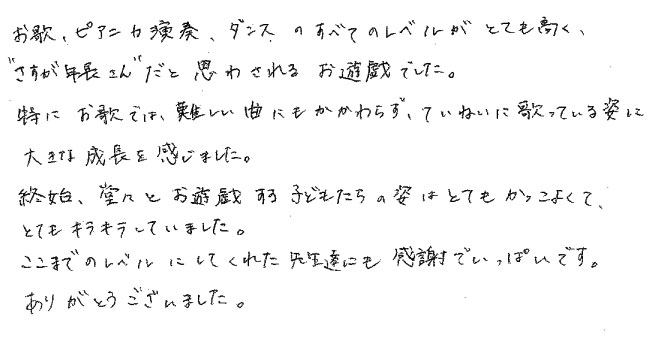 お歌、ピアニカ演奏、ダンスのすべてのレベルがとても高く、
"さすが年長さん"だと思わされるお遊戯でした。
特にお歌では、難しい曲にもかかわらず、ていねいに歌っている姿に
大きな成長を感じました。
終始、堂々とお遊戯する子どもたちの姿はとてもかっこよくて、
とてもキラキラしていました。
ここまでのレベルにしてくれた先生達にも感謝でいっぱいです。
ありがとうございました。